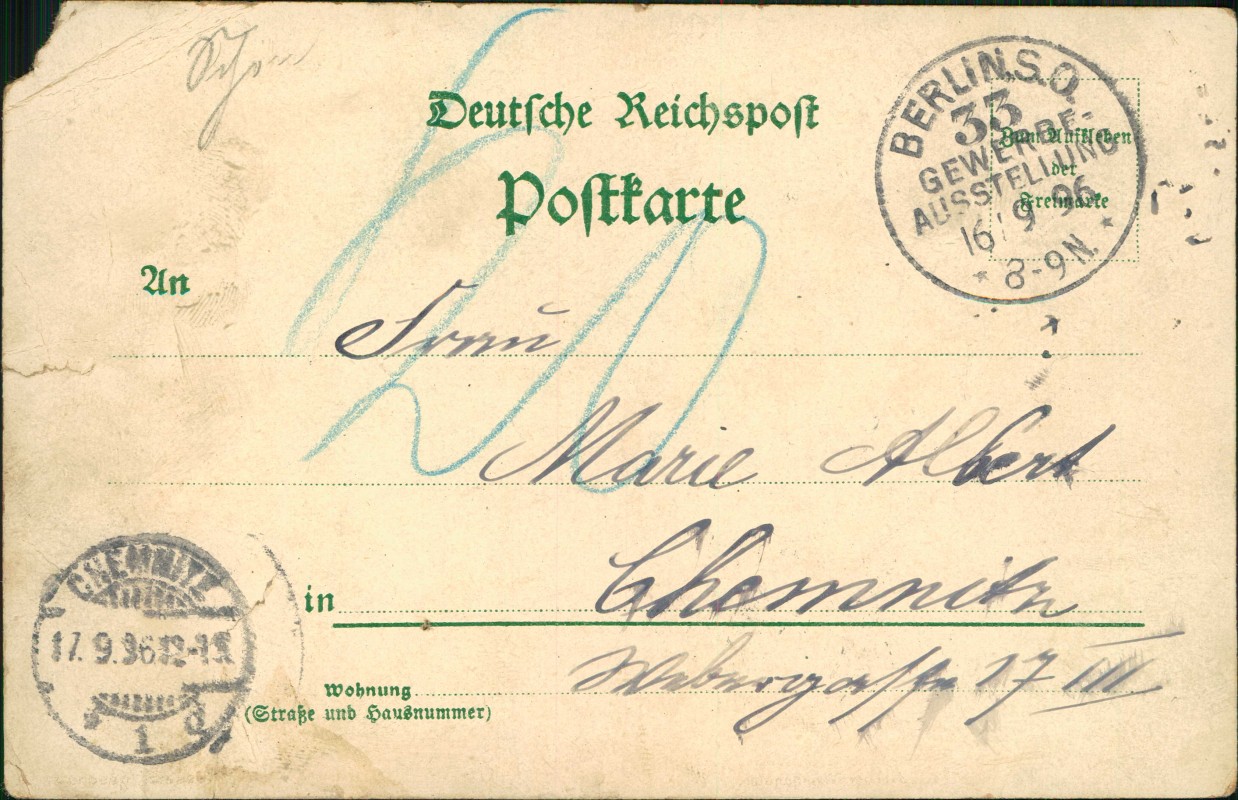 Schön
Deutsche Reichspost
Postkarte
BERLIN, S.O.
33
GEWERBE-
AUSSTELLUNG
16 9 96
* 8-9 N. *
Zum Aufkleben
der
Freimarke
An
Frau
Marie Albert
in Chemnitz
Wohnung Webergasse 17 III
(Straße und Hausnummer)
20
CHEMNITZ
17. 9. 96 12-1N.
1